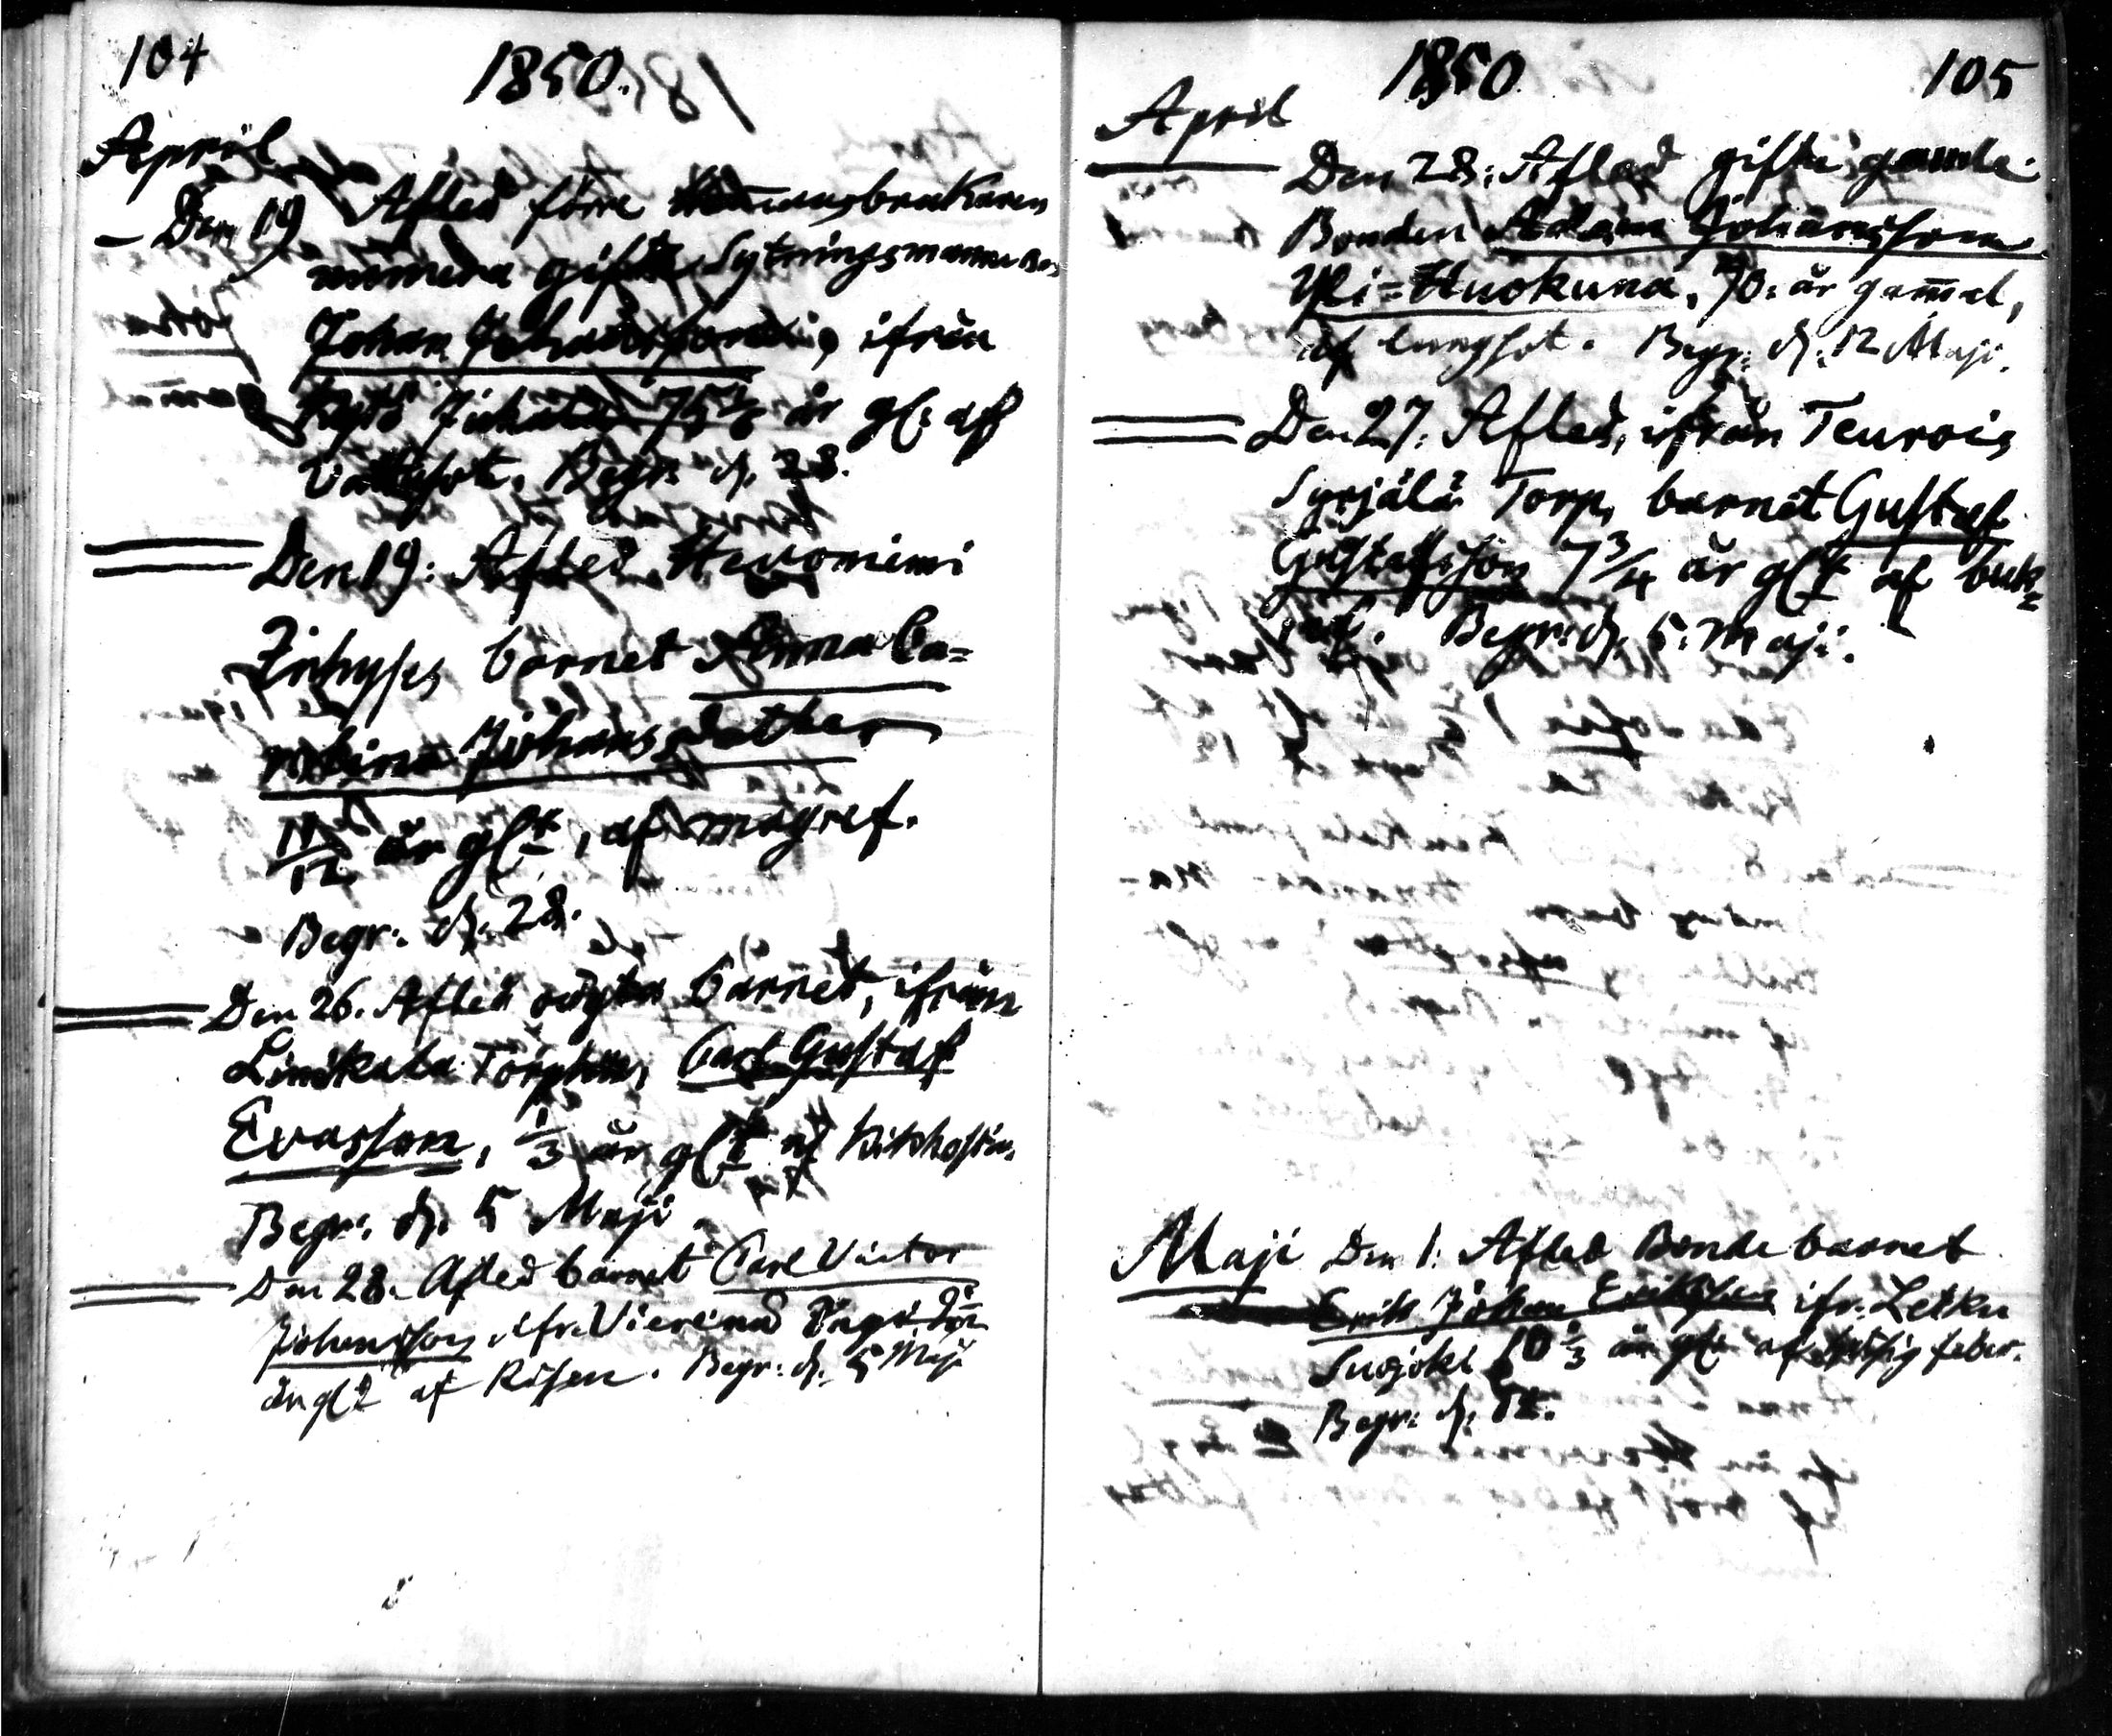 104
1850.
April
Den 19 Afled förre Hemmansbrukaren
numera gifte Sytningsmannen
Johan Johansson, ifrån
år gl: af
Vattsot. Begr: d. 28.
Den 19: Afled Hevoniemi
Inhyses barnet Anna Ca=
rolina Johansdotter
11/12 år glt, af magref.
Begr: d. 28.
Den 26. Afled oägta barnet, ifrån
Linikkala Torp, Carl Gustaf
Evasson, 1/3 år glt af Kikhosta.
Begr: d. 5 Maji
Den 28. Afled barnet Carl Victor
Johansson ifr. Vierinä
år glt af Risen. Begr: d. 5 Maji
1850
105
April
Den 28: Afled gifte gamle
Bonden Adam Johansson
Yli=Huokuna, 70: år gammal,
af lungsot. Begr: d. 12 Maji.
Den 27. Afled, ifrån Teurois
Syrjälä Torp, barnet Gustaf
Gustafsson 7 3/4 år glt af buk=
ref. Begr: d. 5. Maji.
Maji Den 1: Afled Bonde barnet
Erik Johan Eriksson ifr. Letku
Suojoki 10 1/3 år glt af hitsig feber.
Begr: d. 12.